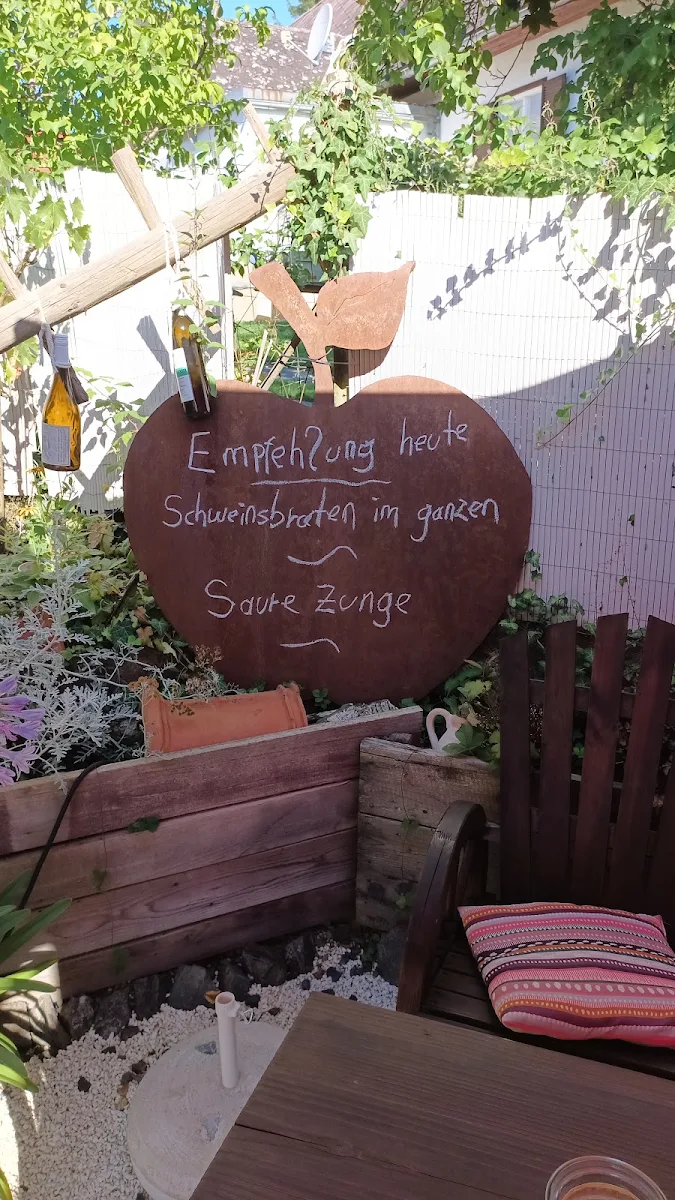 Empfehlung heute
Schweinsbraten im ganzen
Saure Zunge